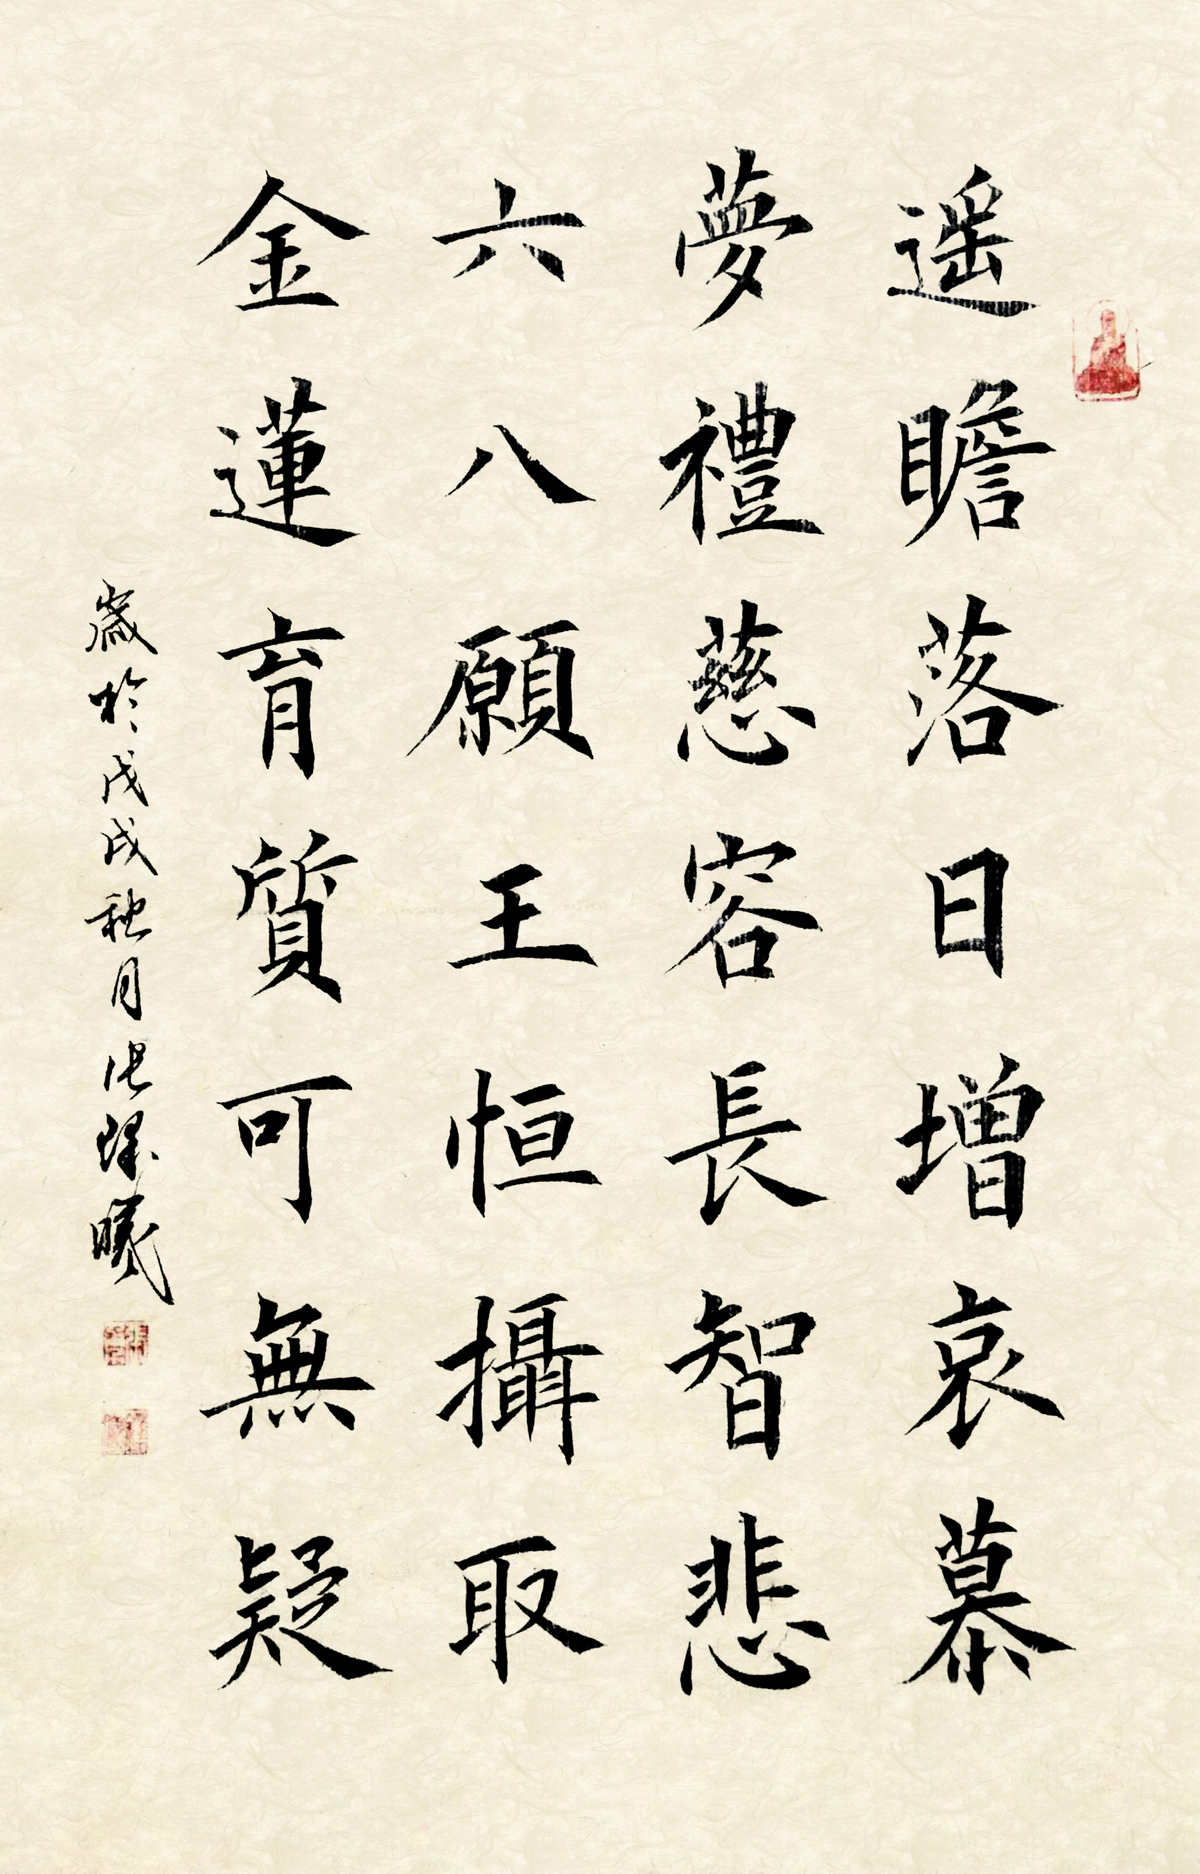 遥瞻落日增哀慕
夢禮慈容長智悲
六八願王恒攝取
金蓮育質可無疑
歲於戊戌秋月張璨曦